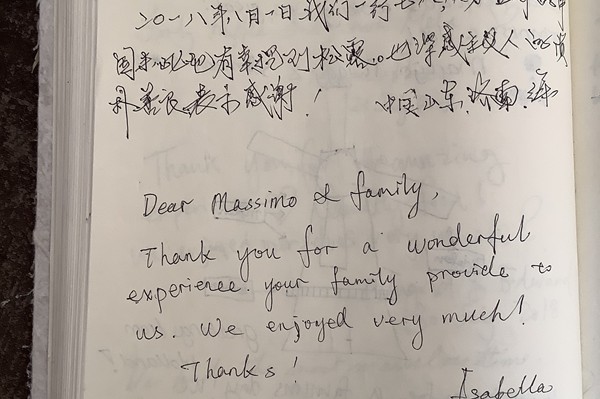 二〇一八年八月一日我们一行七
国来的也有幸挖到松露。也深感主人的
表示感谢！ 中国山东.济南.
Dear Massimo & family,
Thank you for a wonderful
experience. your family provide to
us. We enjoyed very much!
Thanks!
Isabella